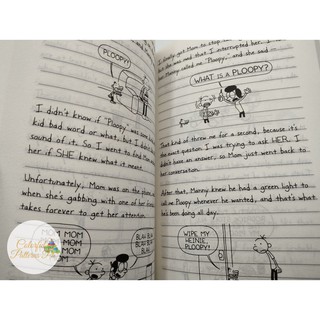 PLOOPY!
I didn't know if "Ploopy" was some
kid bad word or what, but I didn't
sound of it. So I went to find Mom
her if SHE knew what it meant.
Unfortunately, Mom was on the phone, a
when she's gabbing with one of her
takes forever to get her attention.
MOM MOM
MOM MOM
BLAH BLAH
BLAH
Colorful
Patterns
get Mom to stop
and she was mad that I interrupted her.
Manny called me "Ploopy," and she said
WHAT IS A PLOOPY?
That kind of threw me for a second, because it's
the exact question I was trying to ask HER. I
didn't have an answer, so Mom just went back to
her conversation.
After that, Manny knew he had a green light to
call me Ploopy whenever he wanted, and that's what
he's been doing all day.
WIPE MY
HEINIE,
PLOOPY!